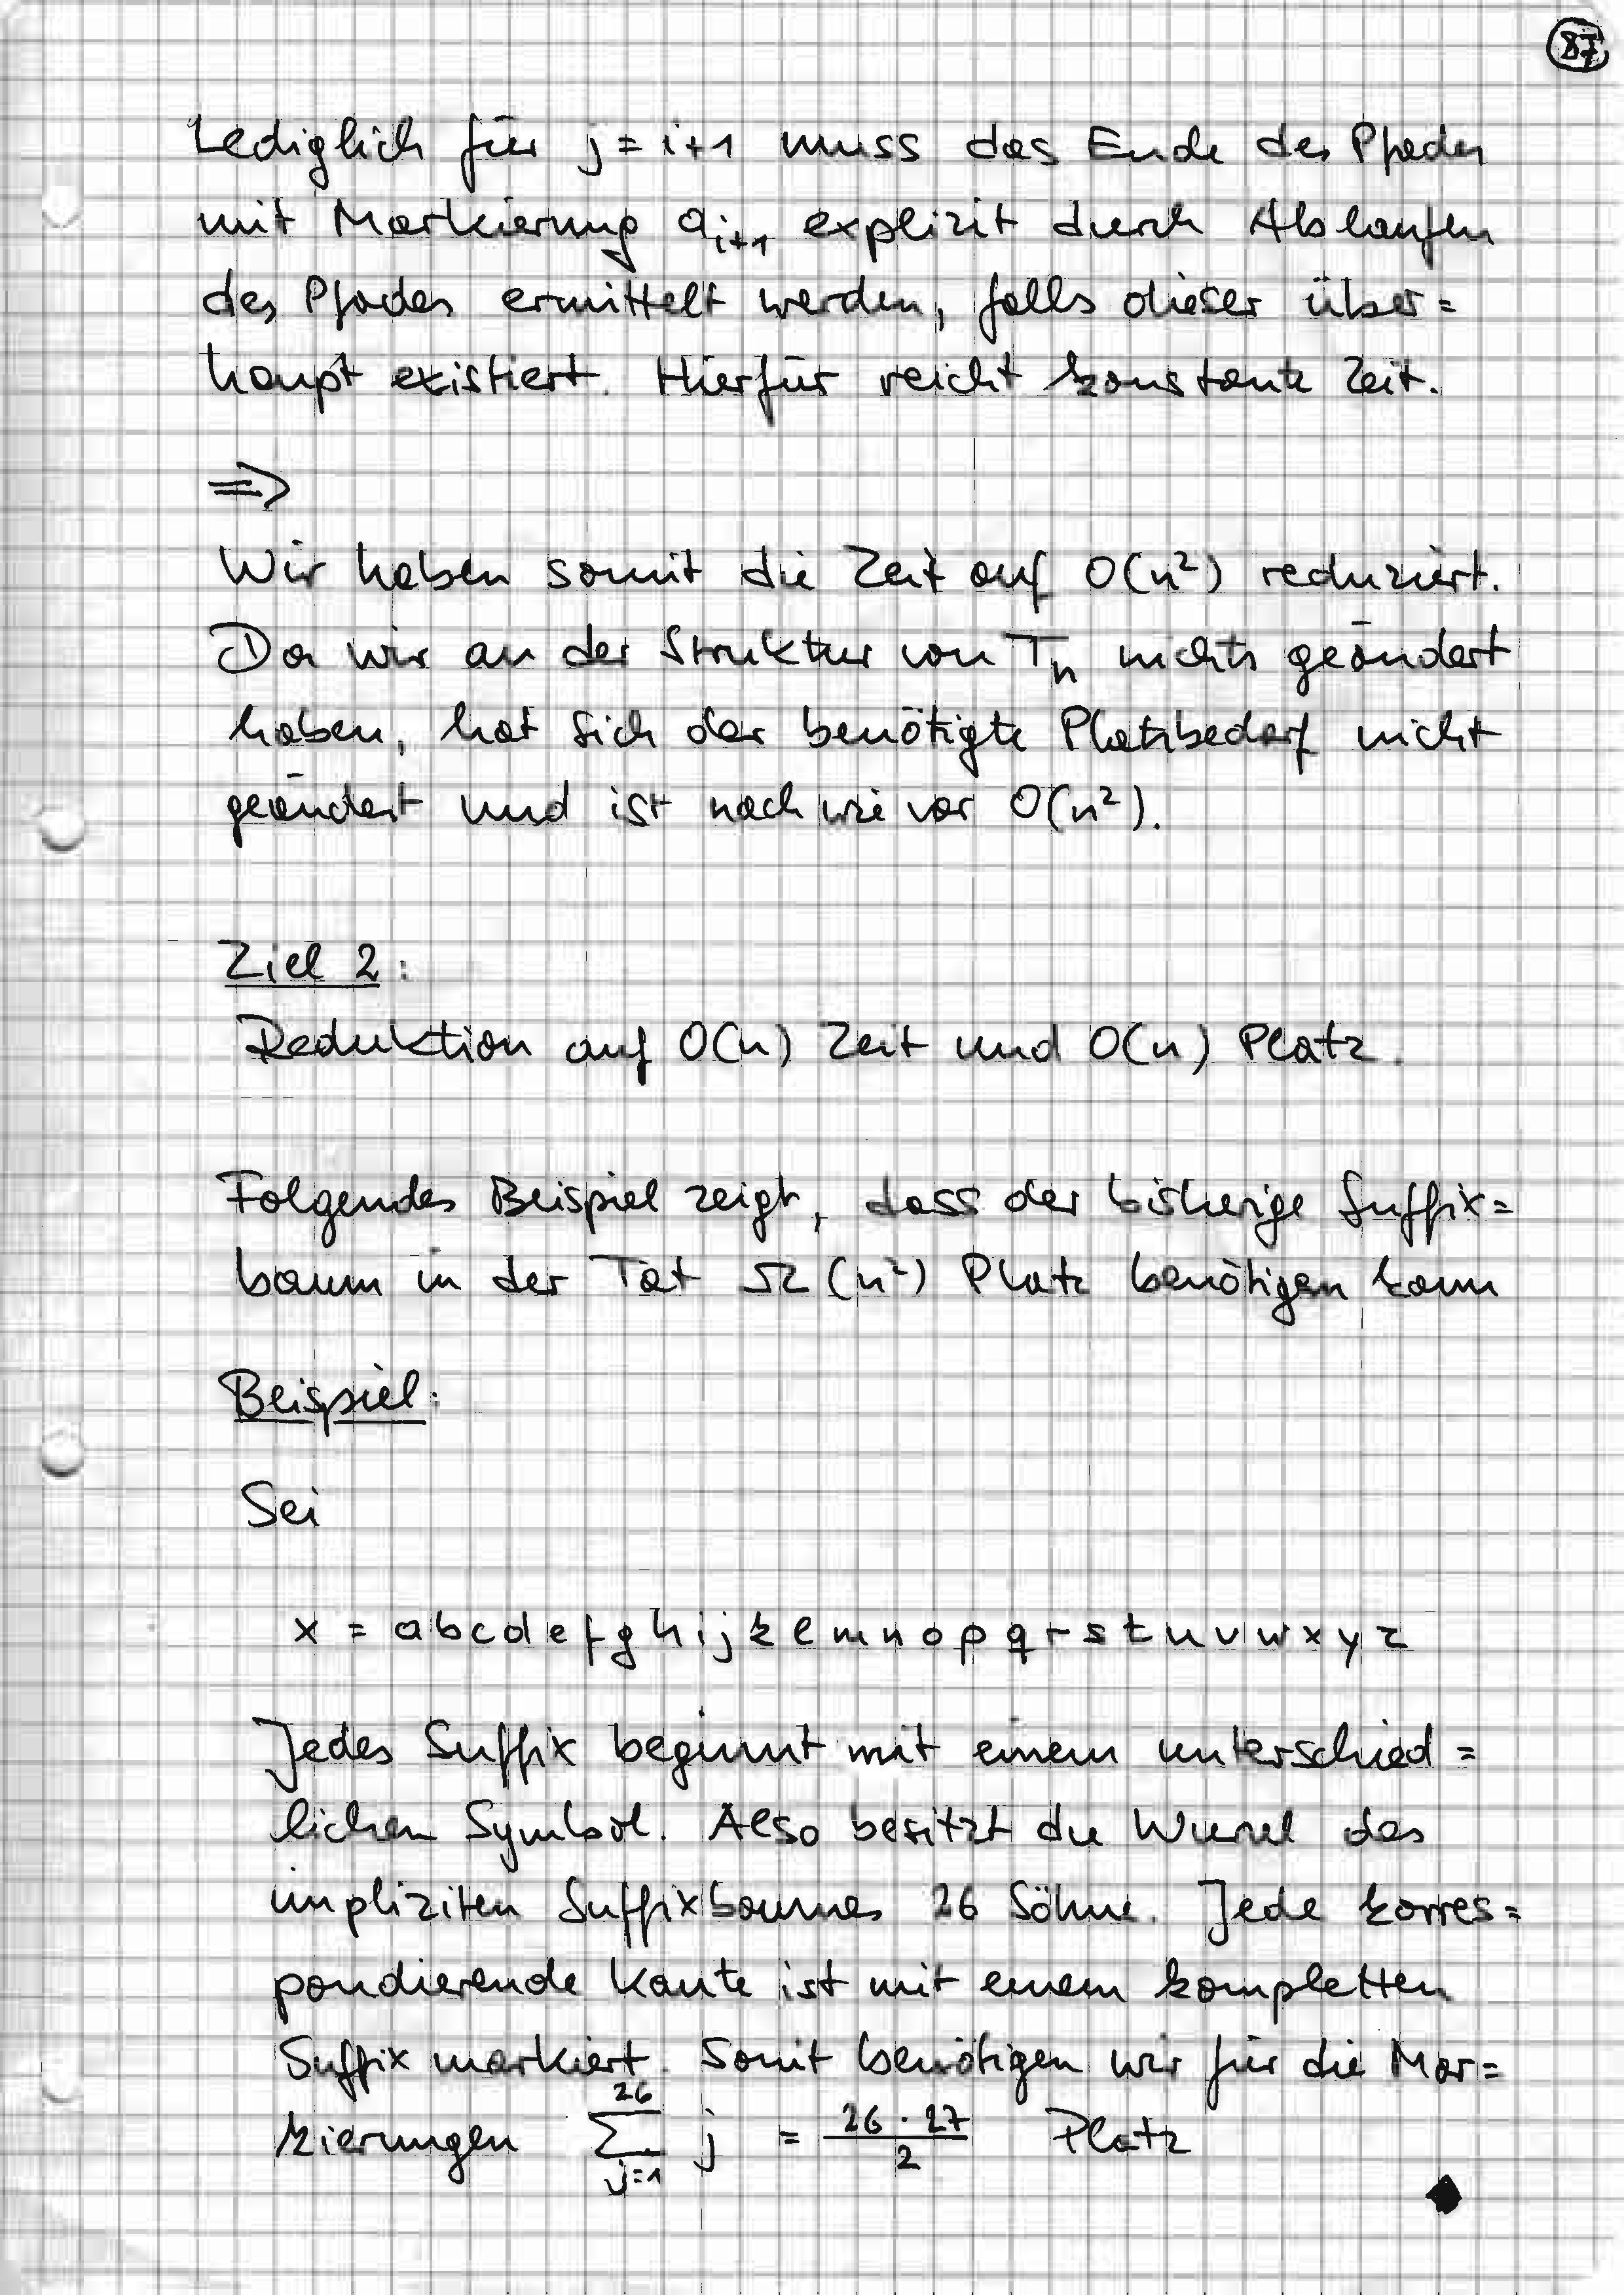 87
Lediglich für j = i+1 muss das Ende des Pfades
mit Markierung a_{i+1} explizit durch Ablaufen
des Pfades ermittelt werden, falls dieser über=
haupt existiert. Hierfür reicht konstante Zeit.
⇒
Wir haben somit die Zeit auf O(n²) reduziert.
Da wir an der Struktur von T_n nichts geändert
haben, hat sich der benötigte Platzbedarf nicht
geändert und ist nach wie vor O(n²).
Ziel 2:
Reduktion auf O(n) Zeit und O(n) Platz.
Folgendes Beispiel zeigt, dass der bisherige Suffix=
baum in der Tat Ω(n²) Platz benötigen kann
Beispiel:
Sei
x = a b c d e f g h i j k l m n o p q r s t u v w x y z
Jedes Suffix beginnt mit einem unterschied=
lichen Symbol. Also besitzt die Wurzel des
impliziten Suffixbaumes 26 Söhne. Jede korres=
pondierende Kante ist mit einem kompletten
Suffix markiert. Somit benötigen wir für die Mar=
kierungen ∑_{j=1}^{26} j = \frac{26 · 27}{2} Platz